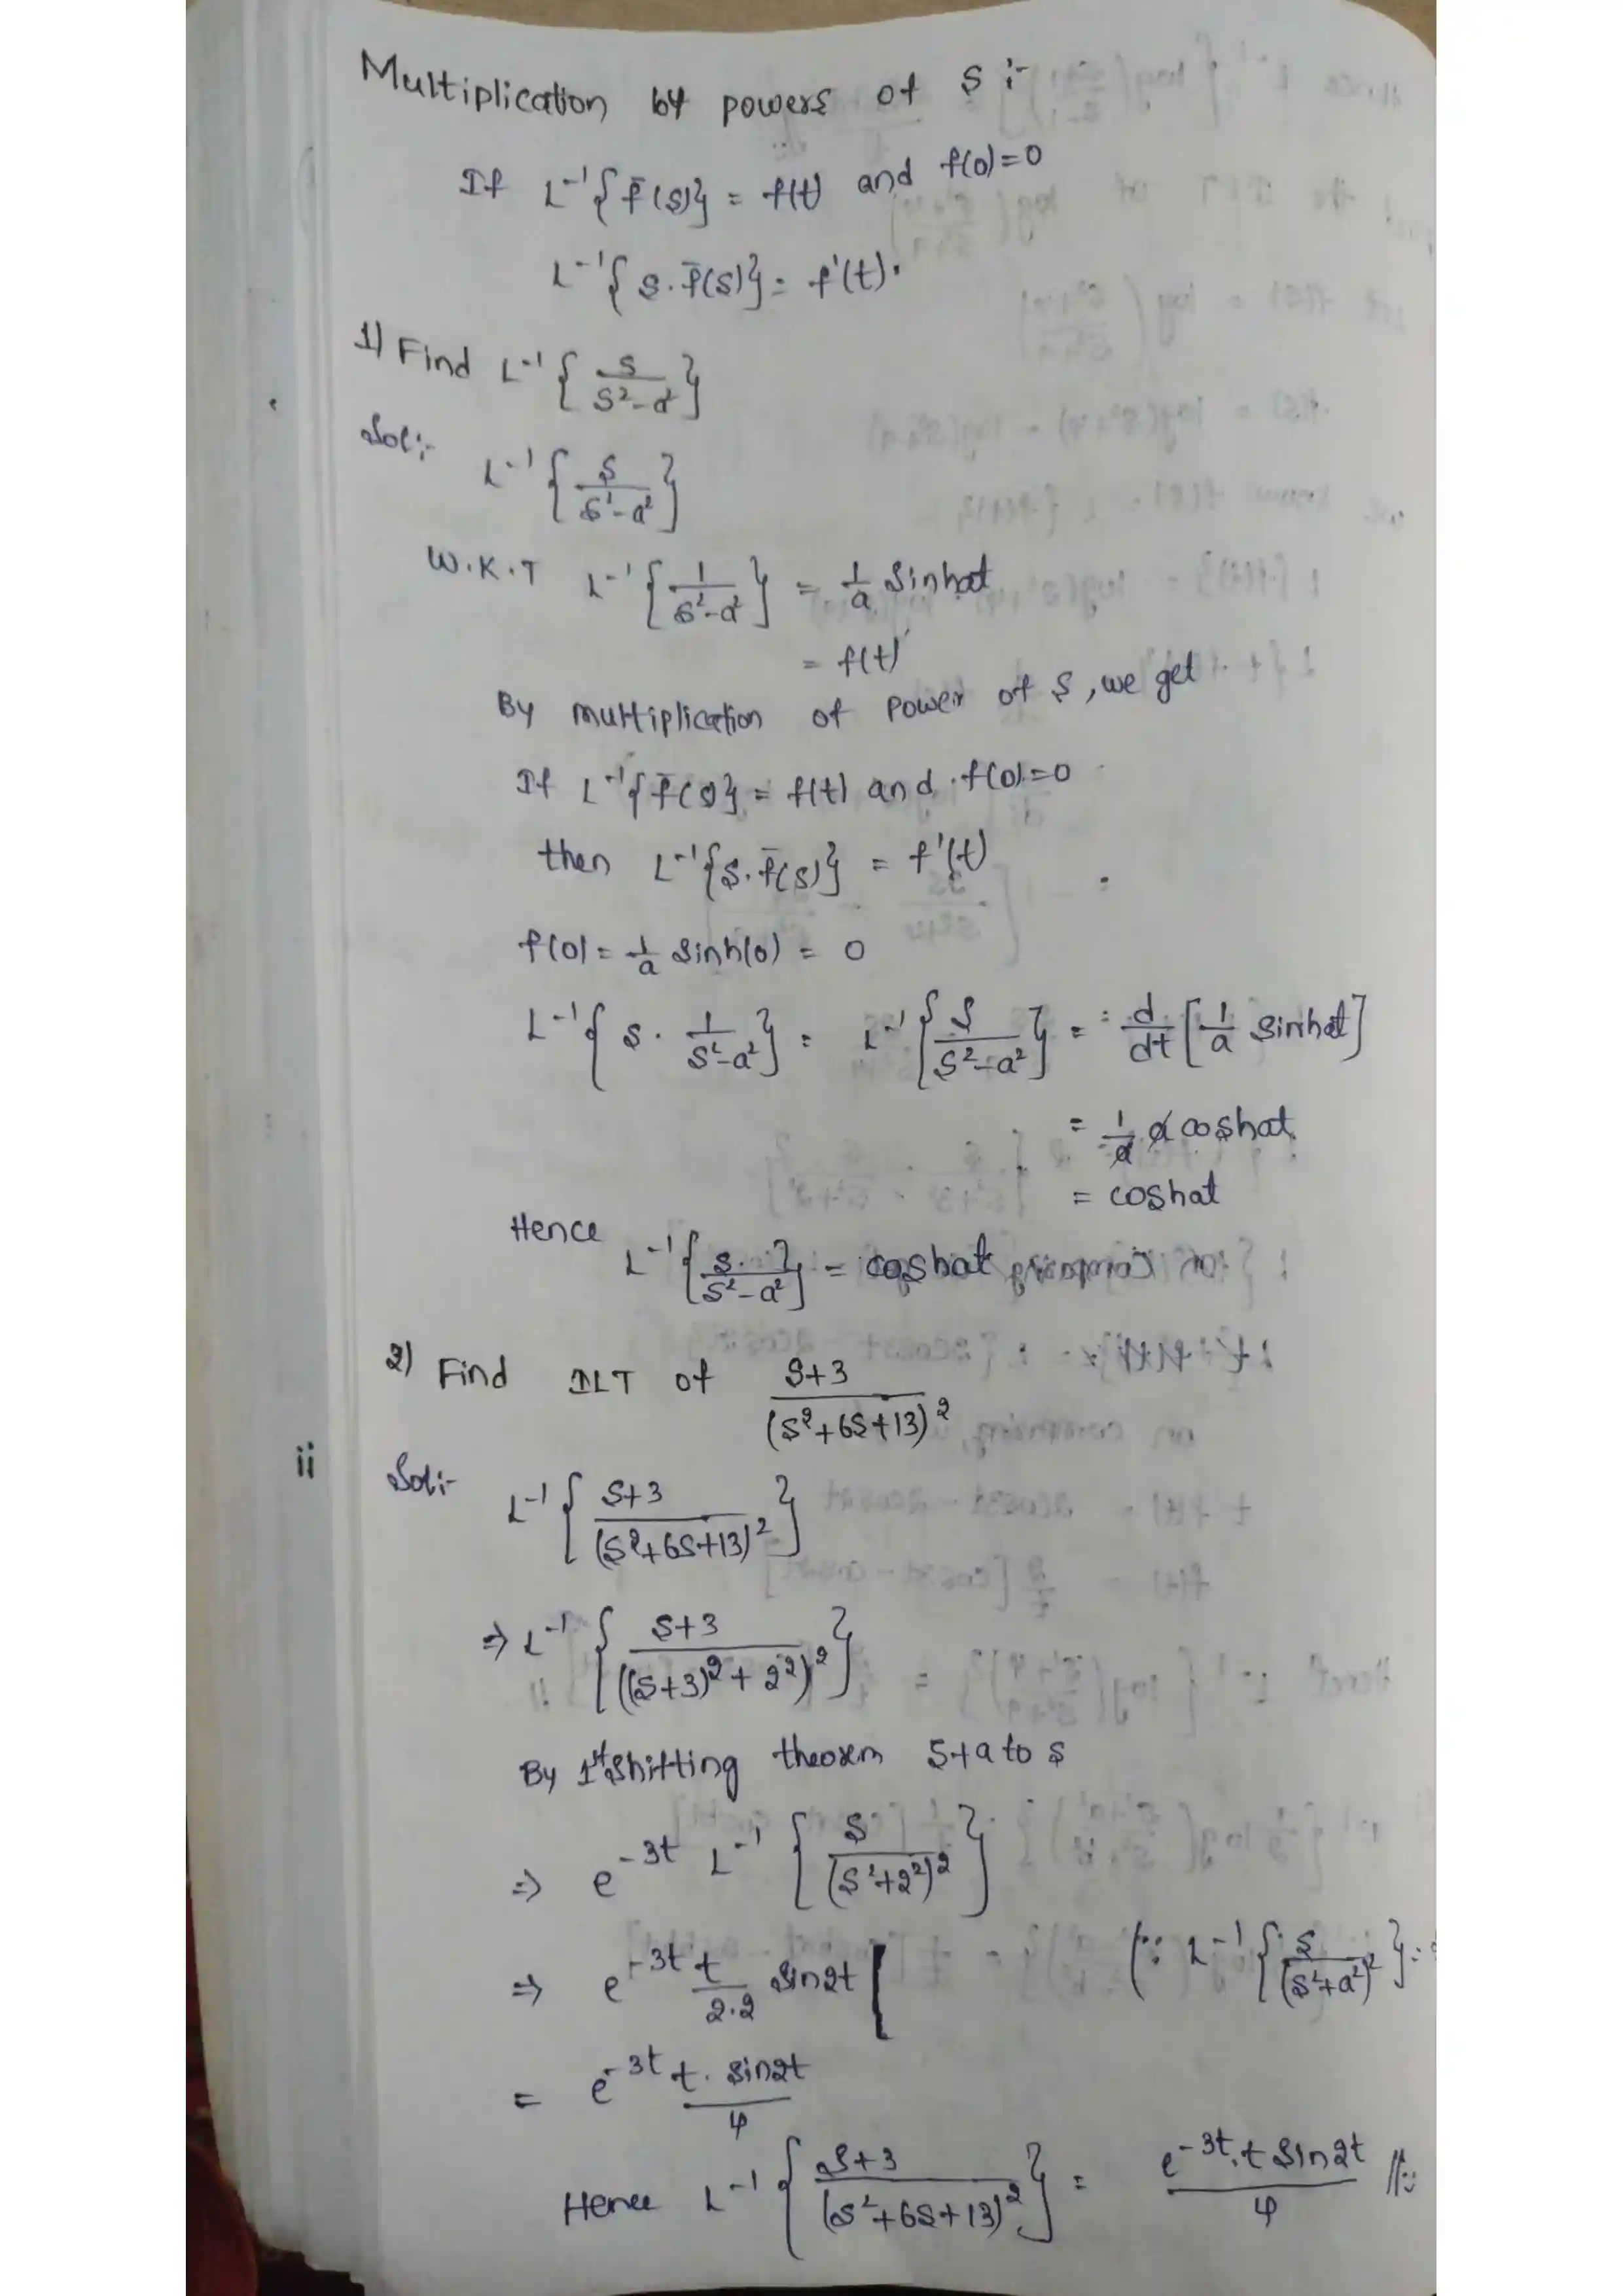 Multiplication by powers of S :-
If L⁻¹{f̄(s)} = f(t) and f(0)=0
L⁻¹{s.f̄(s)} = f'(t).
1) Find L⁻¹{s/(s²-a²)}
Sol:- L⁻¹{s/(s²-a²)}
W.K.T L⁻¹{1/(s²-a²)} = 1/a Sinhat
= f(t)
By multiplication of power of S, we get
If L⁻¹{f̄(s)} = f(t) and f(0)=0
then L⁻¹{s.f̄(s)} = f'(t)
f(0) = 1/a Sinh(0) = 0
L⁻¹{s. 1/(s²-a²)} = L⁻¹{s/(s²-a²)} = d/dt[1/a Sinhat]
= 1/a a coshat
= coshat
Hence L⁻¹{s/(s²-a²)} = coshat
2) Find ILT of (s+3)/(s²+6s+13)²
Sol:- L⁻¹{(s+3)/(s²+6s+13)²}
⇒ L⁻¹{(s+3)/((s+3)²+2²)²}
By 1st shifting theorem s+a to s
⇒ e⁻³ᵗ L⁻¹{s/(s²+2²)²}
⇒ e⁻³ᵗ t/2.2 Sin2t (∵ L⁻¹{s/(s²+a²)²} =
= e⁻³ᵗ t. sin2t/4
Hence L⁻¹{(s+3)/(s²+6s+13)²} = e⁻³ᵗ.t Sin2t/4 //:
ii